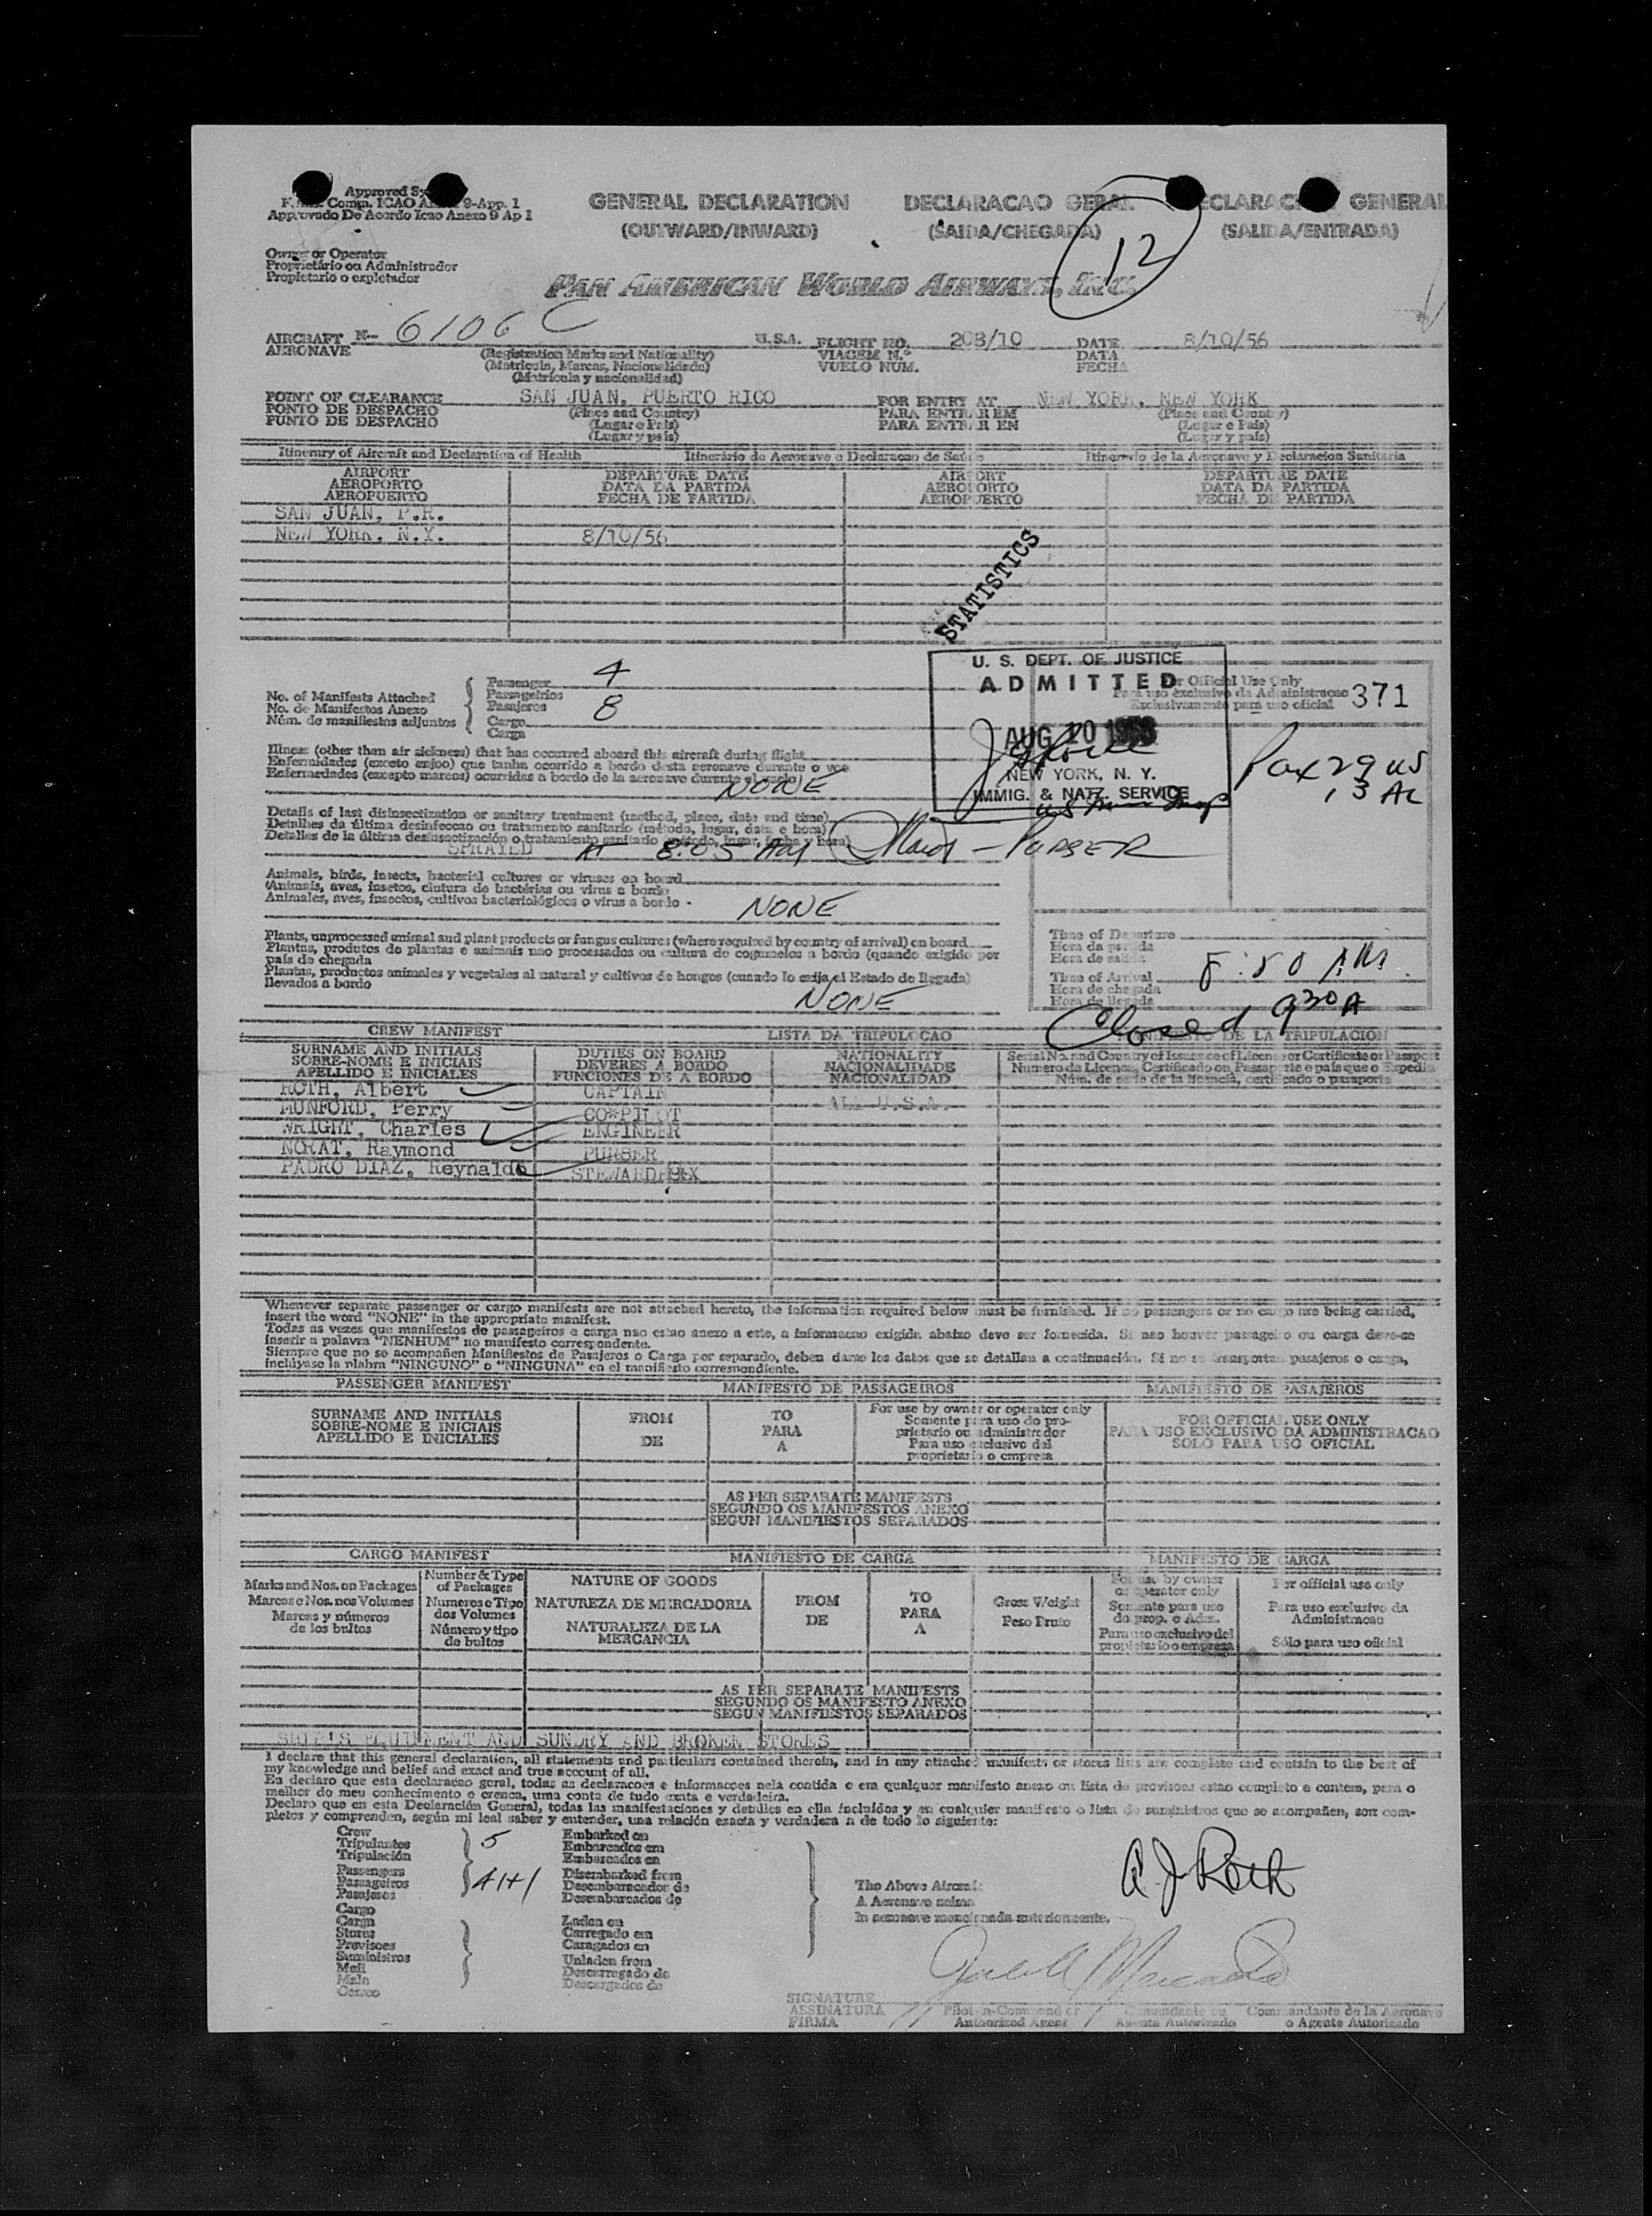 Approved
Comm. ICAO 9-App. 1
Approvado De Acordo Icao Anexo 9 Ap 1
GENERAL DECLARATION
(OUTWARD/INWARD)
DECLARACAO GERAL
(SAIDA/CHEGADA)
GENERAL
(SALIDA/ENTRADA)
12
Owner or Operator
Proprietário ou Administrador
Propietario o explotador
PAN AMERICAN WORLD AIRWAYS, INC.
AIRCRAFT N- 6106 C U.S.A. FLIGHT NO. 208/10 DATE 8/10/56
AERONAVE VIAGEM N.º DATA
VUELO NUM. FECHA
(Registration Marks and Nationality)
(Matricula, Marcas, Nacionalidade)
(Matrícula y nacionalidad)
POINT OF CLEARANCE SAN JUAN, PUERTO RICO FOR ENTRY AT NEW YORK, NEW YORK
PONTO DE DESPACHO (Place and Country) PARA ENTRAR EM (Place and Country)
PUNTO DE DESPACHO (Lugar e País) PARA ENTRAR EN (Lugar e País)
(Lugar y país) (Lugar y país)
Itinerary of Aircraft and Declaration of Health Itinerário da Aeronave e Declaracao de Saúde Itinerario de la Aeronave y Declaracion Sanitaria
AIRPORT DEPARTURE DATE AIRPORT DEPARTURE DATE
AEROPORTO DATA DA PARTIDA AEROPORTO DATA DA PARTIDA
AEROPUERTO FECHA DE PARTIDA AEROPUERTO FECHA DE PARTIDA
SAN JUAN, P.R.
NEW YORK, N.Y. 8/10/56
STATISTICS
No. of Manifests Attached
No. de Manifestos Anexo
Núm. de manifiestos adjuntos
Passenger 4
Passageirios
Pasajeros
Cargo 8
Carga
U. S. DEPT. OF JUSTICE
ADMITTED
AUG
NEW YORK, N. Y.
IMMIG. & NATZ. SERVICE
For Official Use Only
Para uso exclusivo da Administracao
Exclusivamente para uso oficial
371
Pax 29 US
13 AL
Illness (other than air sickness) that has occurred aboard this aircraft during flight
Enfermidades (exceto enjoo) que tenha ocorrido a bordo desta aeronave durante o voo
Enfermedades (excepto mareos) ocurridas a bordo de la aeronave durante el vuelo
NONE
Details of last disinsectization or sanitary treatment (method, place, date and time)
Detalhes da última desinfeccao ou tratamento sanitario (método, lugar, data e hora)
Detalles de la última desinsectización o tratamiento sanitario (método, lugar, fecha y hora)
SPRAYED AT 8:05 AM - PURSER
Animals, birds, insects, bacterial cultures or viruses on board
Animais, aves, insetos, clutura de bactérias ou virus a bordo
Animales, aves, insectos, cultivos bacteriológicos o virus a bordo -
NONE
Plants, unprocessed animal and plant products or fungus cultures (where required by country of arrival) on board
Plantas, produtos de plantas e animais nao processados ou cultura de cogumelos a bordo (quando exigido por
país de chegada
Plantas, productos animales y vegetales al natural y cultivos de hongos (cuando lo exija el Estado de llegada)
llevados a bordo
NONE
Time of Departure
Hora da partida
Hora de salida
Time of Arrival 8:50 AM.
Hora de chegada
Hora de llegada
Closed 930 A
CREW MANIFEST LISTA DA TRIPULACAO DE LA TRIPULACION
SURNAME AND INITIALS DUTIES ON BOARD NATIONALITY Serial No. and Country of Issuance of License or Certificate or Passport
SOBRE-NOME E INICIAIS DEVERES A BORDO NACIONALIDADE Numero da Licenca, Certificado ou Passaporte e pais que o Expediu
APELLIDO E INICIALES FUNCIONES DE A BORDO NACIONALIDAD Núm. de serie de la licencia, certificado o pasaporte
ROTH, Albert CAPTAIN ALL U.S.A.
MUNFORD, Perry CO*PILOT
WRIGHT, Charles ENGINEER
NORAT, Raymond PURSER
PADRO DIAZ, Reynaldo
Whenever separate passenger or cargo manifests are not attached hereto, the information required below must be furnished. If no passengers or no cargo are being carried,
insert the word "NONE" in the appropriate manifest.
Todas as vezes que manifestos de passageiros e carga nao estao anexo a este, a informacao exigida abaixo deve ser fornecida. Si nao houver passageiro ou carga deve-se
inserir a palavra "NENHUM" no manifesto correspondente.
Siempre que no se acompañen Manifiestos de Pasajeros o Carga por separado, deben darse los datos que se detallan a continuación. Si no se transportan pasajeros o carga,
inclúyase la plabra "NINGUNO" o "NINGUNA" en el manifiesto correspondiente.
PASSENGER MANIFEST MANIFESTO DE PASSAGEIROS MANIFIESTO DE PASAJEROS
SURNAME AND INITIALS
SOBRE-NOME E INICIAIS
APELLIDO E INICIALES
FROM
DE
TO
PARA
A
For use by owner or operator only
Somente para uso do pro-
prietario ou administrador
Para uso exclusivo del
proprietario o empresa
FOR OFFICIAL USE ONLY
PARA USO EXCLUSIVO DA ADMINISTRACAO
SOLO PARA USO OFICIAL
AS PER SEPARATE MANIFESTS
SEGUNDO OS MANIFESTOS ANEXO
SEGUN MANIFIESTOS SEPARADOS
CARGO MANIFEST MANIFIESTO DE CARGA MANIFESTO DE CARGA
Marks and Nos. on Packages
Marcas e Nos. nos Volumes
Marcas y números
de los bultos
Number & Type
of Packages
Numeros e Tipo
dos Volumes
Número y tipo
de bultos
NATURE OF GOODS
NATUREZA DE MERCADORIA
NATURALEZA DE LA
MERCANCIA
FROM
DE
TO
PARA
A
Gross Weight
Peso Bruto
For use by owner
or operator only
Somente para uso
do prop. e Adm.
Para uso exclusivo del
propietario o empresa
For official use only
Para uso exclusivo da
Administracao
Sólo para uso oficial
AS PER SEPARATE MANIFESTS
SEGUNDO OS MANIFESTO ANEXO
SEGUN MANIFIESTOS SEPARADOS
AND SUNDRY AND BROKEN STORES
I declare that this general declaration, all statements and particulars contained therein, and in any attached manifests or stores lists are complete and contain to the best of
my knowledge and belief and exact and true account of all.
Eu declaro que esta declaracao geral, todas as declaracoes e informacoes nela contida e em qualquer manifesto anexo ou lista de provisoes estao completo e contem, para o
melhor do meu conhecimento e crenca, uma conta de tudo exata e verdadeira.
Declaro que en esta Declaración General, todas las manifestaciones y detalles en ella incluídos y en cualquier manifiesto o lista de suministros que se acompañen, son com-
pletos y comprenden, según mi leal saber y entender, una relación exacta y verdadera a de todo lo siguiente:
Crew
Tripulantes
Tripulación
5
Passengers
Passageiros
Pasajeros
41+1
Cargo
Carga
Stores
Provisoes
Suministros
Mail
Mala
Correo
Embarked on
Embarcados em
Embarcados en
Disembarked from
Desembaracados de
Desembarcados de
Laden on
Carregado em
Caragados en
Unladen from
Descarregado de
Descargados de
The Above Aircraft
A Aeronave acima
In aeronave mencionada anteriormente.
A. J. Roth
SIGNATURE
ASSINATURA
FIRMA
Pilot-in-Command or
Authorized Agent
Comandante ou
Agente Autorizado
Commandante de la Aeronave
o Agente Autorizado